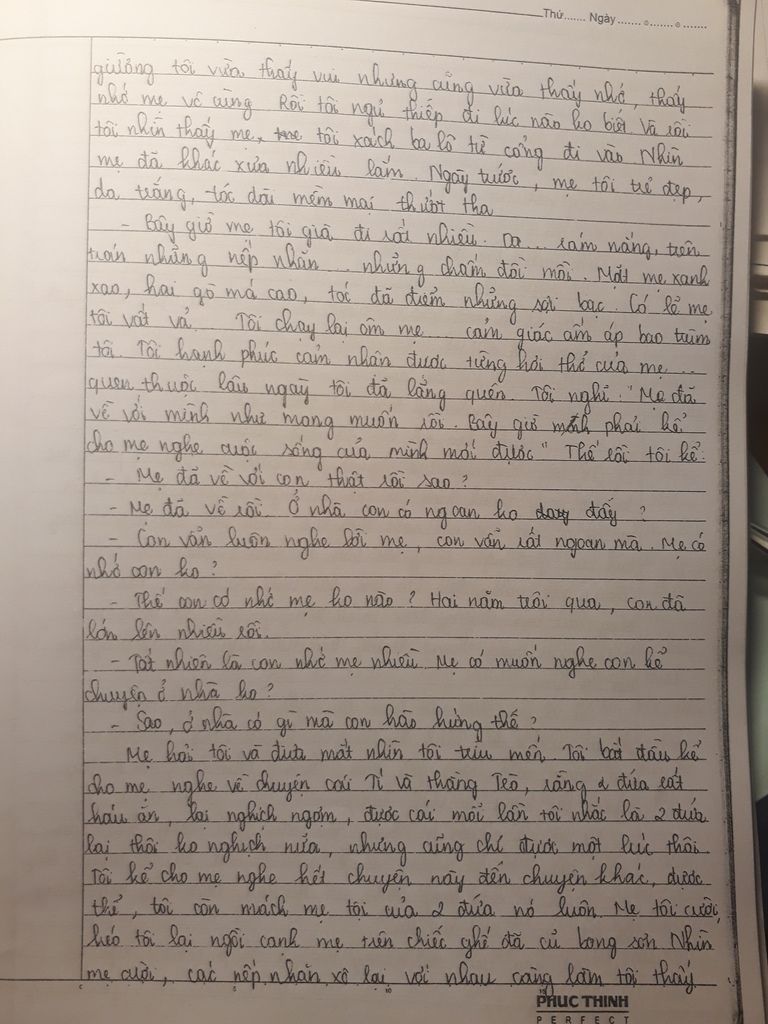 Thứ....... Ngày....... .......  .......
giường tôi vừa thấy vui nhưng cũng vừa thấy nhớ, thấy
nhớ mẹ vô cùng. Rồi tôi ngủ thiếp đi lúc nào ko biết. Và rồi
tôi nhìn thấy mẹ, tôi xách ba lô từ cổng đi vào. Nhìn
mẹ đã khác xưa nhiều lắm. Ngày trước, mẹ tôi trẻ đẹp,
da trắng, tóc dài mềm mại thướt tha
- Bây giờ mẹ tôi già đi rất nhiều. Da... rám nắng, trên
trán những nếp nhăn... những chấm đồi mồi. Mặt mẹ xanh
xao, hai gò má cao, tóc đã điểm những sợi bạc. Có lẽ mẹ
tôi vất vả. Tôi chạy lại ôm mẹ... cảm giác ấm áp bao trùm
tôi. Tôi hạnh phúc cảm nhận được từng hơi thở của mẹ...
quen thuộc lâu ngày tôi đã lãng quên. Tôi nghĩ: "Mẹ đã
về với mình như mong muốn rồi. Bây giờ mình phải kể
cho mẹ nghe cuộc sống của mình mới được" Thế rồi tôi kể:
- Mẹ đã về với con thật rồi sao?
- Mẹ đã về rồi. Ở nhà con có ngoan ko đấy?
- Con vẫn luôn nghe lời mẹ, con vẫn rất ngoan mà. Mẹ có
nhớ con ko?
- Thế con có nhớ mẹ ko nào? Hai năm trôi qua, con đã
lớn lên nhiều rồi.
- Tất nhiên là con nhớ mẹ nhiều. Mẹ có muốn nghe con kể
chuyện ở nhà ko?
- Sao, ở nhà có gì mà con hào hứng thế?
Mẹ hỏi tôi và đưa mắt nhìn tôi trìu mến. Tôi bắt đầu kể
cho mẹ nghe về chuyện cái Tí và thằng Tèo, rằng 2 đứa rất
háu ăn, lại nghịch ngợm, được cái mỗi lần tôi nhắc là 2 đứa
lại thôi ko nghịch nữa, nhưng cũng chỉ được một lúc thôi.
Tôi kể cho mẹ nghe hết chuyện này đến chuyện khác, được
thể, tôi còn mách mẹ tội của 2 đứa nó luôn. Mẹ tôi cười,
kéo tôi lại ngồi cạnh mẹ trên chiếc ghế đã cũ bong sơn. Nhìn
mẹ cười, các nếp nhăn xô lại với nhau càng làm tôi thấy
PHUC THINH
PERFECT